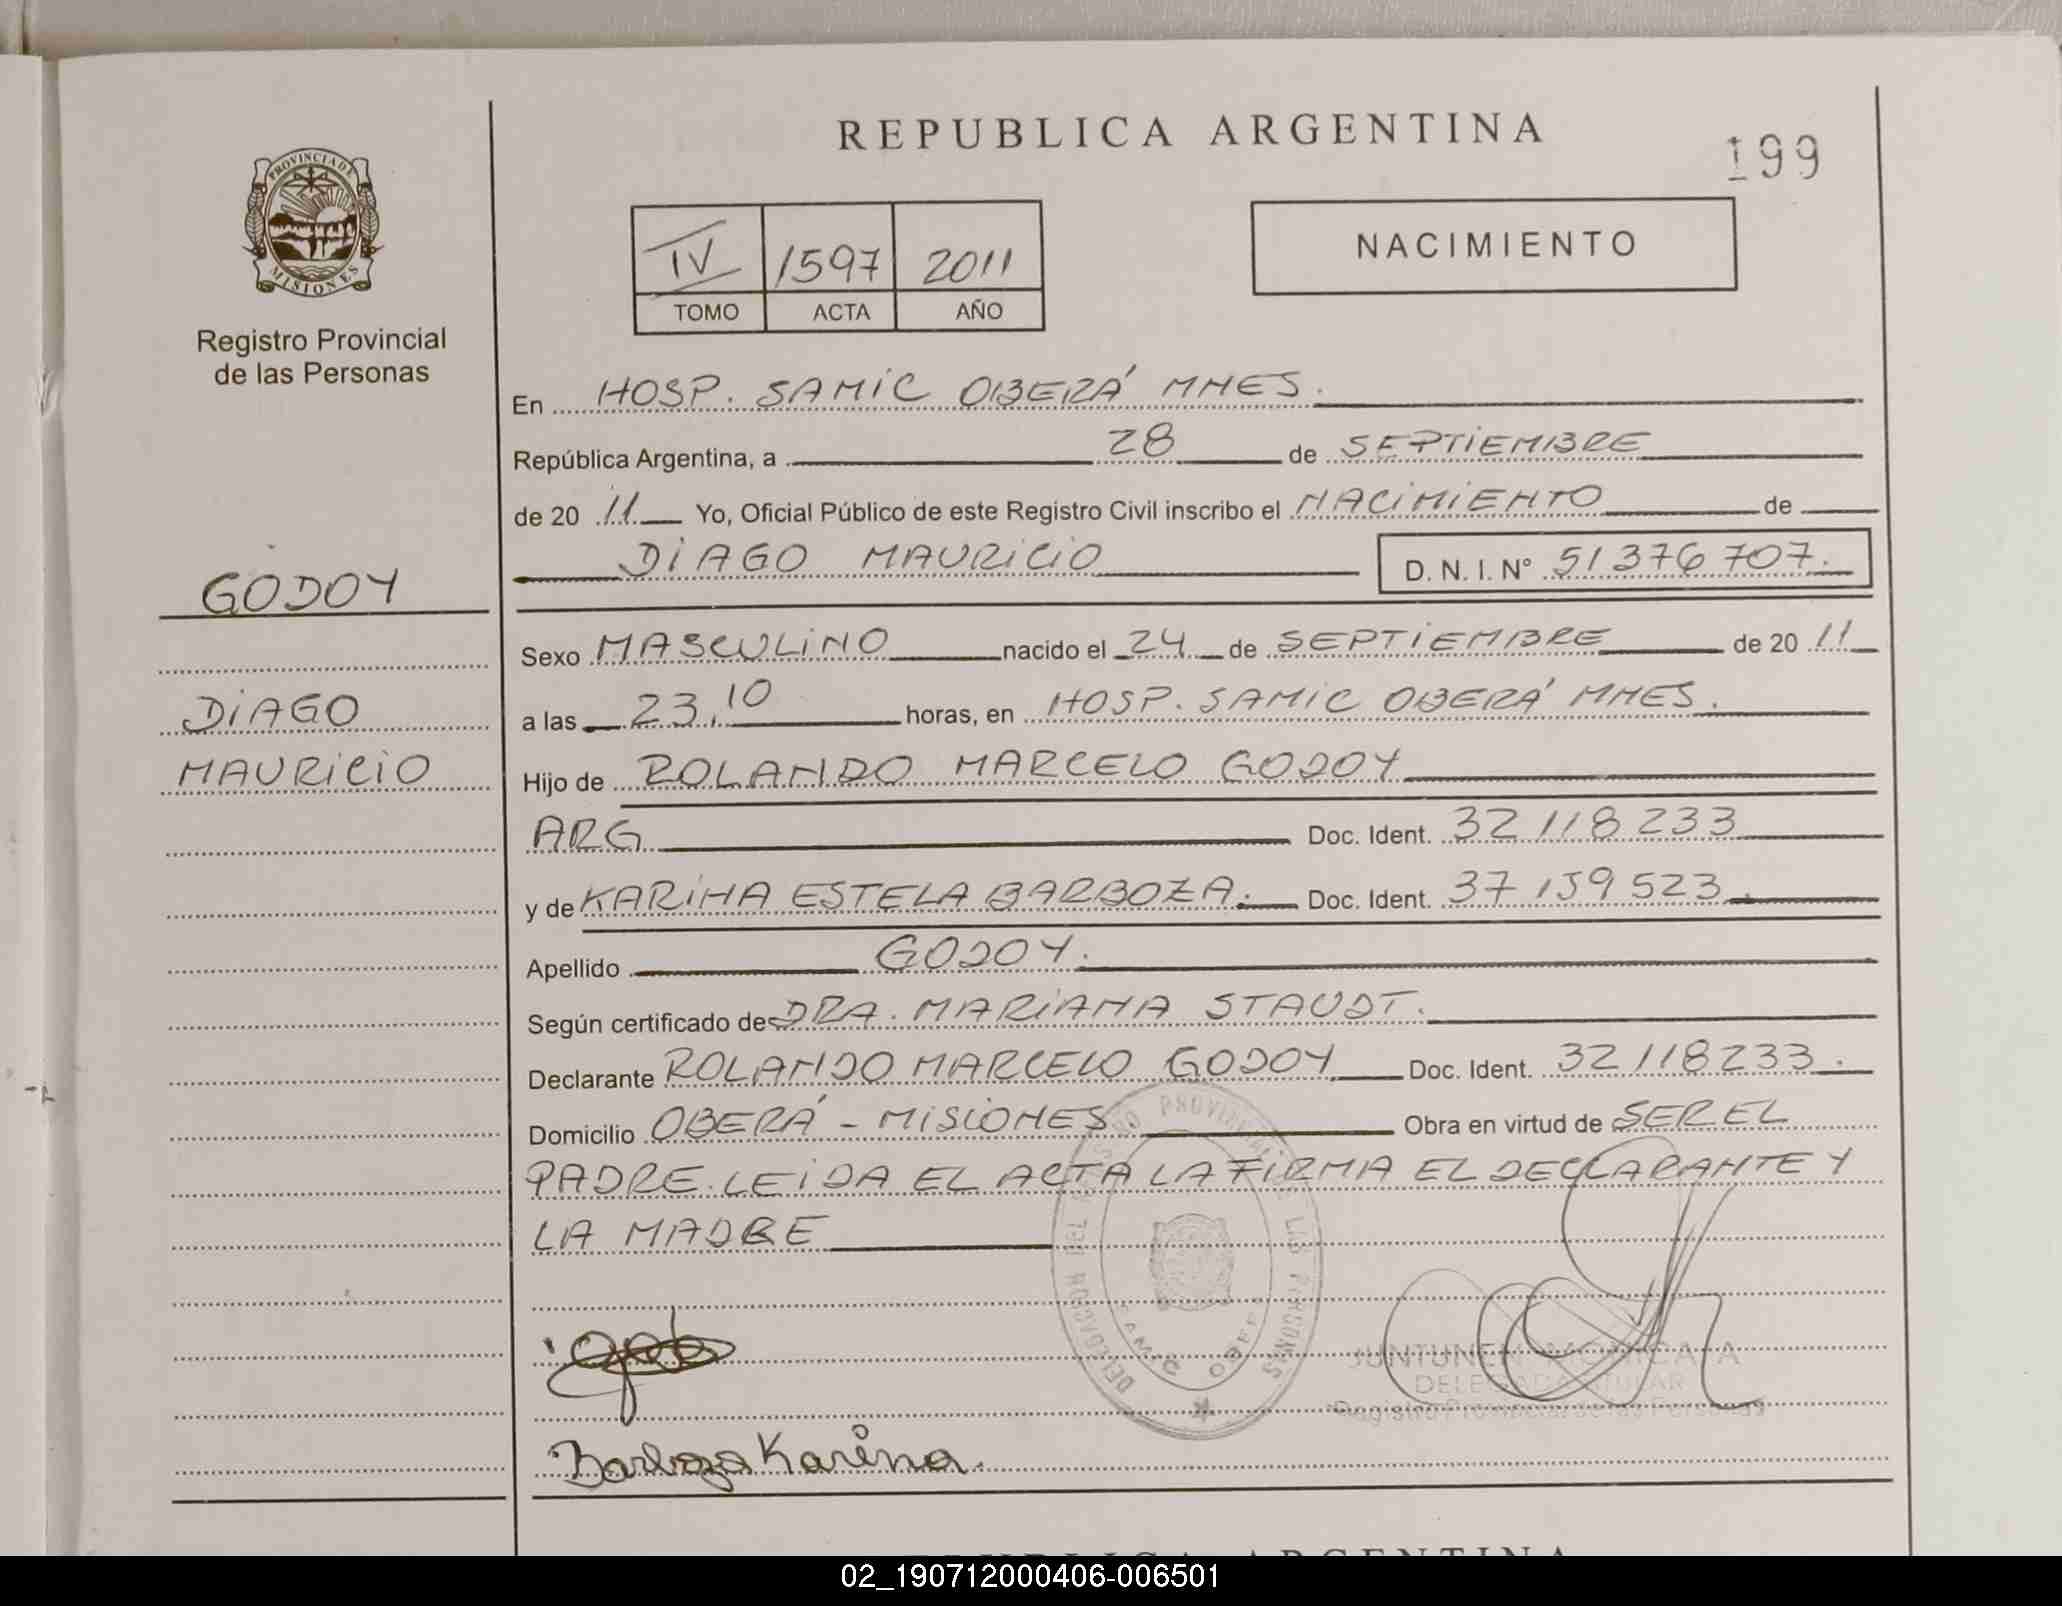 REPUBLICA ARGENTINA
199
PROVINCIA DE
MISIONES
Registro Provincial
de las Personas
IV 1597 2011
TOMO ACTA AÑO
NACIMIENTO
En HOSP. SAMIC OBERÁ MNES.
República Argentina, a 28 de SEPTIEMBRE
de 20 11 Yo, Oficial Público de este Registro Civil inscribo el NACIMIENTO de
DIAGO MAURICIO D. N. I. N° 51376707.
GODOY
DIAGO
MAURICIO
Sexo MASCULINO nacido el 24 de SEPTIEMBRE de 20 11
a las 23,10 horas, en HOSP. SAMIC OBERÁ MNES.
Hijo de ROLANDO MARCELO GODOY
ARG Doc. Ident. 32 118 233
y de KARINA ESTELA BARBOZA. Doc. Ident. 37 159 523.
Apellido GODOY.
Según certificado de DRA. MARIANA STAUDT.
Declarante ROLANDO MARCELO GODOY Doc. Ident. 32 118 233.
Domicilio OBERÁ - MISIONES Obra en virtud de SER EL
PADRE. LEIDA EL ACTA LA FIRMA EL DECLARANTE Y
LA MADRE
JUNTUNEN MONICA A
DELEGADA TITULAR
Registro Provincial de las Personas
Barboza Karina.
REPUBLICA ARGENTINA
02_190712000406-006501